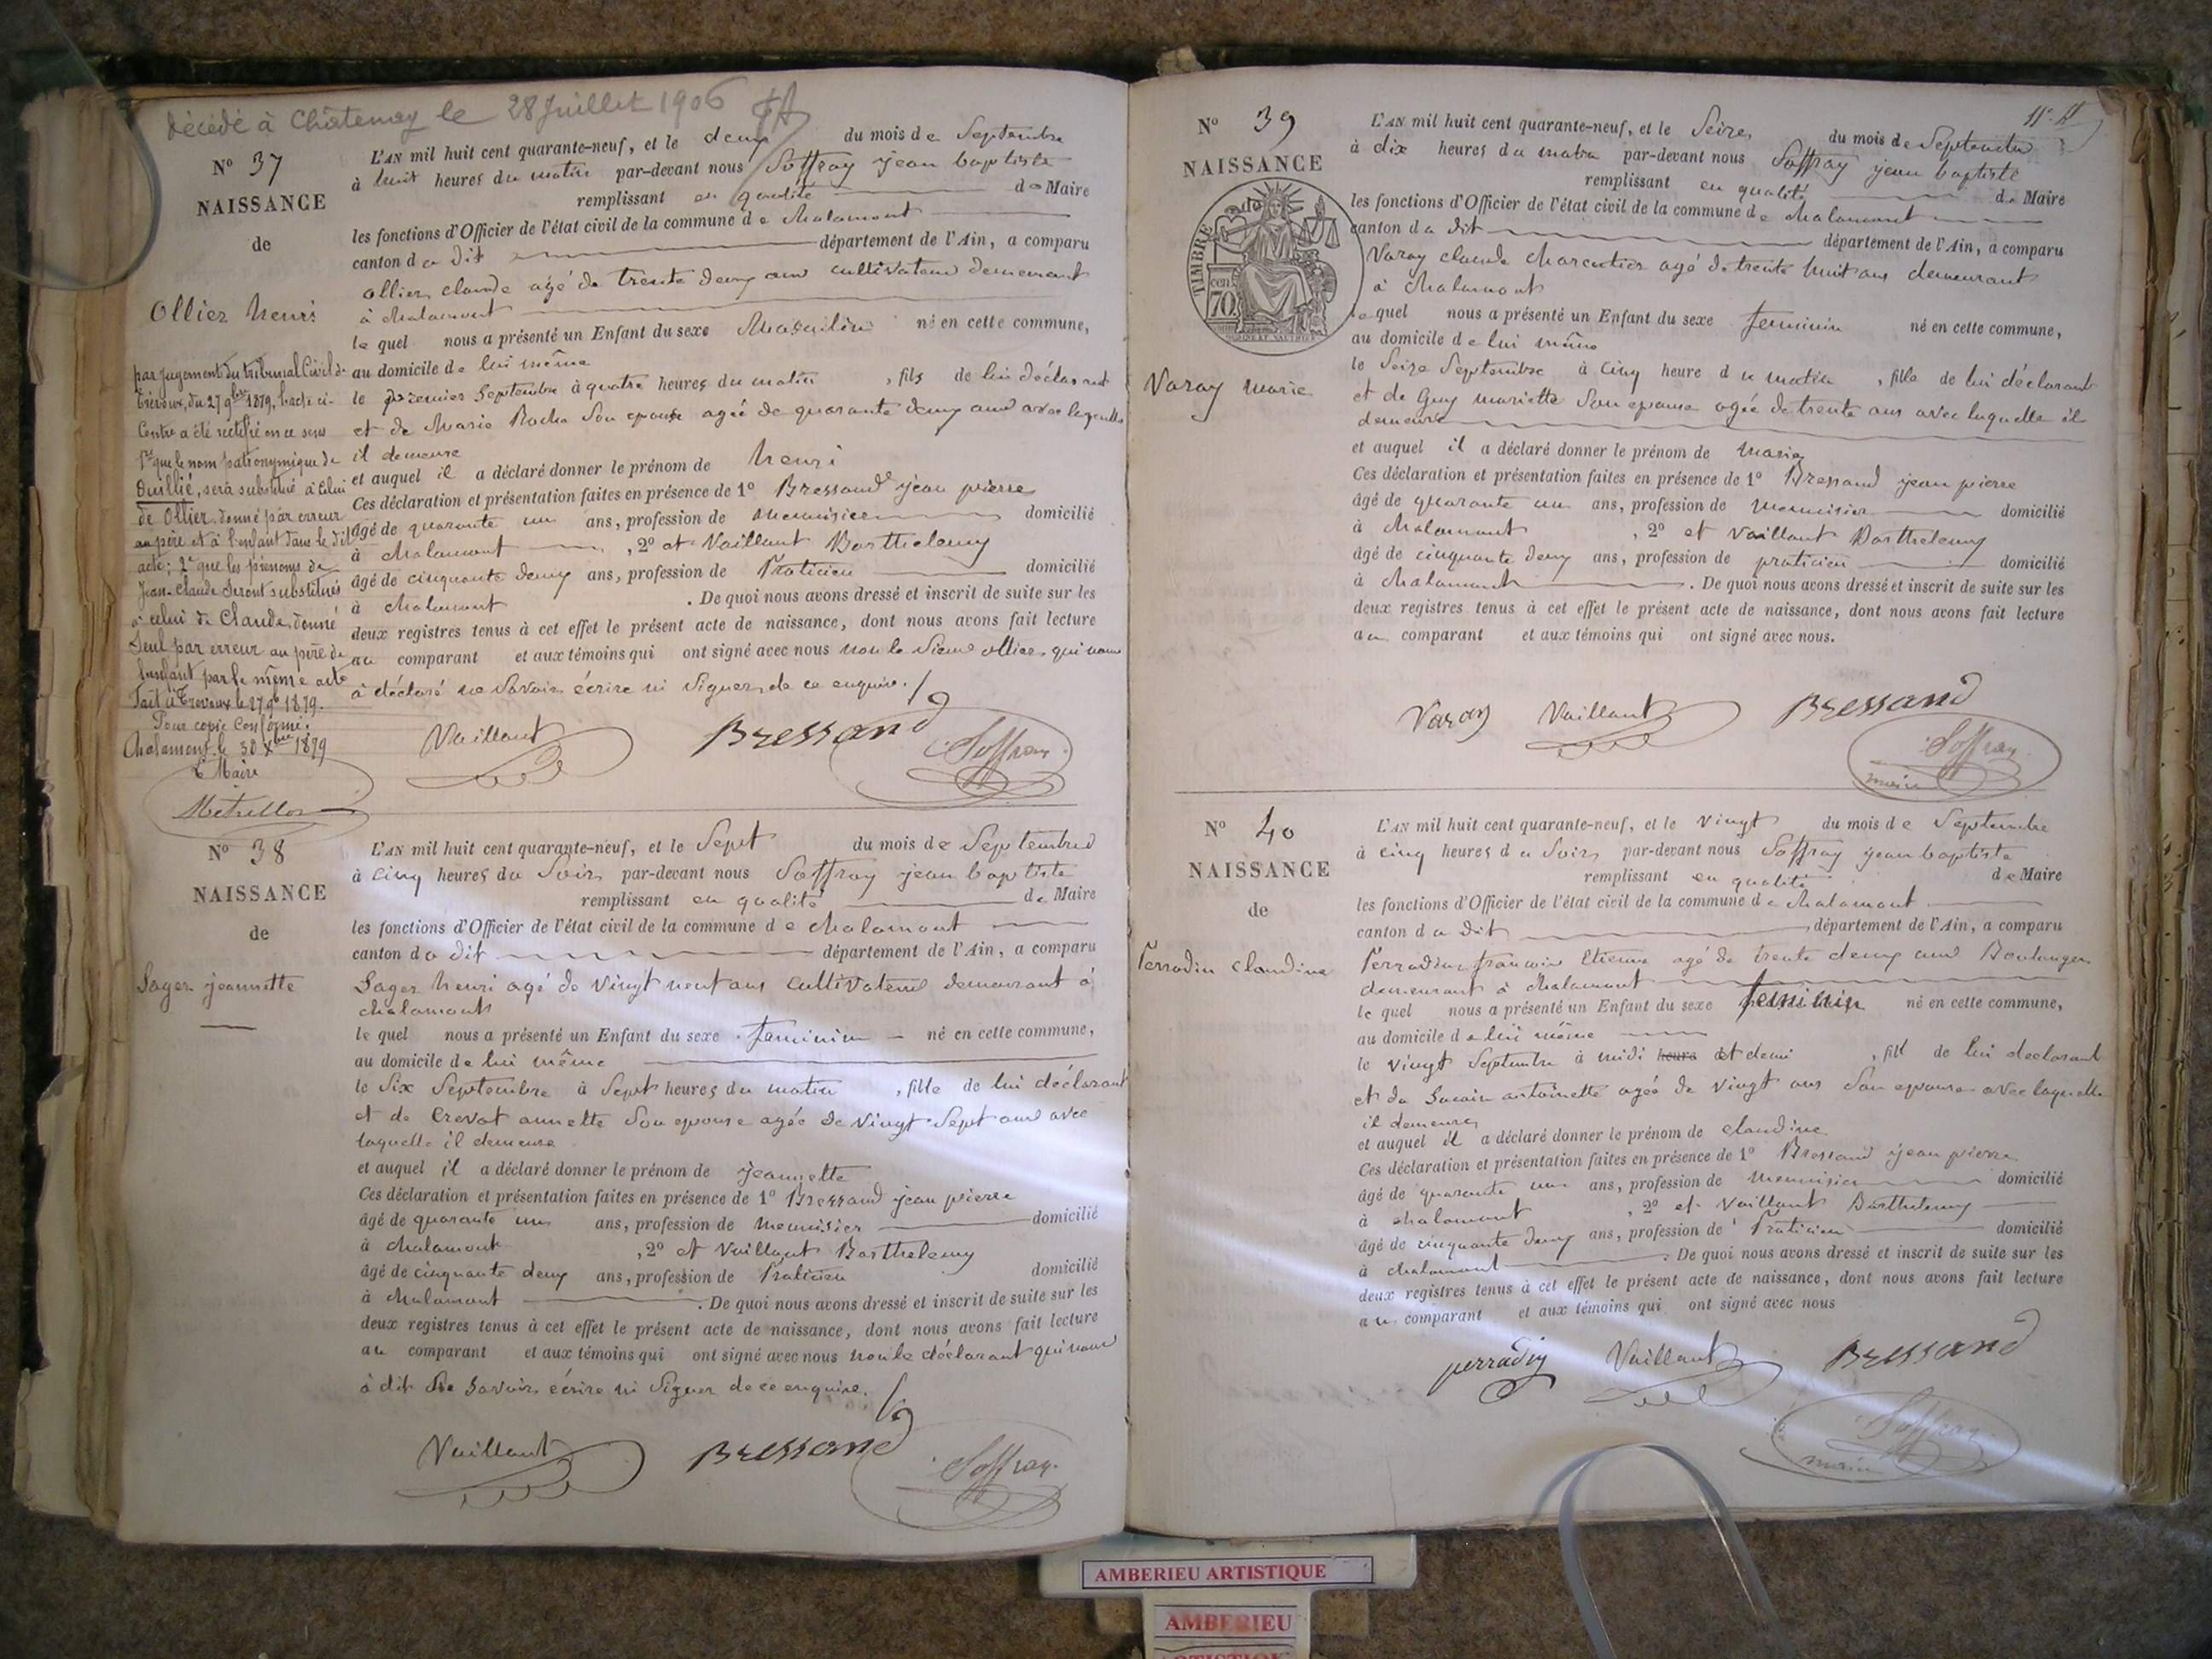 décédé à Châtenay le 28 Juillet 1906
N° 37
NAISSANCE
de
Ollier henri
par jugement du tribunal Civil de
Trévoux, du 27 9bre 1879, l'acte ci-
Contre a été rectifié en ce sens
1° que le nom patronymique de
Duillié, sera substitué à celui
de Ollier donné par erreur
au père et à l'enfant dans le dit
acte; 2° que les prénoms de
Jean-Claude seront substitués
à celui de Claude, donné
seul par erreur au père de
l'enfant par le même acte
Fait à Trévoux le 27 9b 1879.
Pour copie Conforme.
Chalamont le 30 Xbre 1879
Le Maire
L'AN mil huit cent quarante-neuf, et le deux du mois de Septembre
à huit heures du matin par-devant nous Soffray jean baptiste
remplissant en qualité de Maire
les fonctions d'Officier de l'état civil de la commune de chalamont
canton du dit département de l'Ain, a comparu
ollier claude agé de trente deux ans cultivateur demeurant
à chalamont
le quel nous a présenté un Enfant du sexe Masculin né en cette commune,
au domicile de lui même
le premier Septembre à quatre heures du matin, fils de lui déclarant
et de Marie Rocha Son epouse agée de quarante deux ans avec laquelle
il demeure
et auquel il a déclaré donner le prénom de henri
Ces déclaration et présentation faites en présence de 1° Bressand jean pierre
âgé de quarante un ans, profession de menuisier domicilié
à chalamont, 2° et Vaillant Barthelemy
âgé de cinquante deux ans, profession de Praticien domicilié
à chalamont. De quoi nous avons dressé et inscrit de suite sur les
deux registres tenus à cet effet le présent acte de naissance, dont nous avons fait lecture
au comparant et aux témoins qui ont signé avec nous non le Sieur ollier qui nous
à déclaré ne Savoir écrire ni Signer de ce enquis.
Vaillant Bressand Soffray
N° 38
NAISSANCE
de
Sager jeannette
L'AN mil huit cent quarante-neuf, et le Sept du mois de Septembre
à cinq heures du Soir par-devant nous Soffray jean baptiste
remplissant en qualité de Maire
les fonctions d'Officier de l'état civil de la commune de chalamont
canton du dit département de l'Ain, a comparu
Sager henri agé de vingt neuf ans cultivateur demeurant à
chalamont
le quel nous a présenté un Enfant du sexe feminin né en cette commune,
au domicile de lui même
le Six Septembre à Sept heures du matin, fille de lui déclarant
et de Crevat annette Son epouse agée de vingt Sept ans avec
laquelle il demeure
et auquel il a déclaré donner le prénom de jeannette
Ces déclaration et présentation faites en présence de 1° Bressand jean pierre
âgé de quarante un ans, profession de menuisier domicilié
à chalamont, 2° et Vaillant Barthelemy
âgé de cinquante deux ans, profession de Praticien domicilié
à chalamont. De quoi nous avons dressé et inscrit de suite sur les
deux registres tenus à cet effet le présent acte de naissance, dont nous avons fait lecture
au comparant et aux témoins qui ont signé avec nous non le déclarant qui nous
à dit ne Savoir écrire ni Signer de ce enquise.
Vaillant Bressand Soffray
N° 39
NAISSANCE
TIMBRE
70
Varay marie
L'AN mil huit cent quarante-neuf, et le Seize du mois de Septembre
à dix heures du matin par-devant nous Soffray jean baptiste
remplissant en qualité de Maire
les fonctions d'Officier de l'état civil de la commune de chalamont
canton du dit département de l'Ain, a comparu
Varay claude charcutier agé de trente huit ans demeurant
à chalamont
le quel nous a présenté un Enfant du sexe feminin né en cette commune,
au domicile de lui même
le Seize Septembre à cinq heure du matin, fille de lui déclarant
et de Guy mariette Son epouse agée de trente ans avec laquelle il
demeure
et auquel il a déclaré donner le prénom de marie
Ces déclaration et présentation faites en présence de 1° Bressand jean pierre
âgé de quarante un ans, profession de menuisier domicilié
à chalamont, 2° et Vaillant Barthelemy
âgé de cinquante deux ans, profession de praticien domicilié
à chalamont. De quoi nous avons dressé et inscrit de suite sur les
deux registres tenus à cet effet le présent acte de naissance, dont nous avons fait lecture
au comparant et aux témoins qui ont signé avec nous.
Varay Vaillant Bressand
Soffray
maire
N° 40
NAISSANCE
de
Perradin claudine
L'AN mil huit cent quarante-neuf, et le vingt du mois de Septembre
à cinq heures du Soir par-devant nous Soffray jean baptiste
remplissant en qualité de Maire
les fonctions d'Officier de l'état civil de la commune de chalamont
canton du dit département de l'Ain, a comparu
Perradin francois Etienne agé de trente deux ans Boulanger
demeurant à chalamont
le quel nous a présenté un Enfant du sexe feminin né en cette commune,
au domicile de lui même
le vingt Septembre à midi heure et demi, fill de lui declarant
et de antoinette agée de vingt ans Son epouse avec laquelle
il demeure
et auquel il a déclaré donner le prénom de claudine
Ces déclaration et présentation faites en présence de 1° Bressand jean pierre
âgé de quarante un ans, profession de menuisier domicilié
à chalamont, 2° et Vaillant Barthelemy
âgé de cinquante deux ans, profession de Praticien domicilié
à chalamont. De quoi nous avons dressé et inscrit de suite sur les
deux registres tenus à cet effet le présent acte de naissance, dont nous avons fait lecture
au comparant et aux témoins qui ont signé avec nous
perradin Vaillant Bressand
Soffray
maire
AMBERIEU ARTISTIQUE
AMBERIEU
ARTISTIQUE